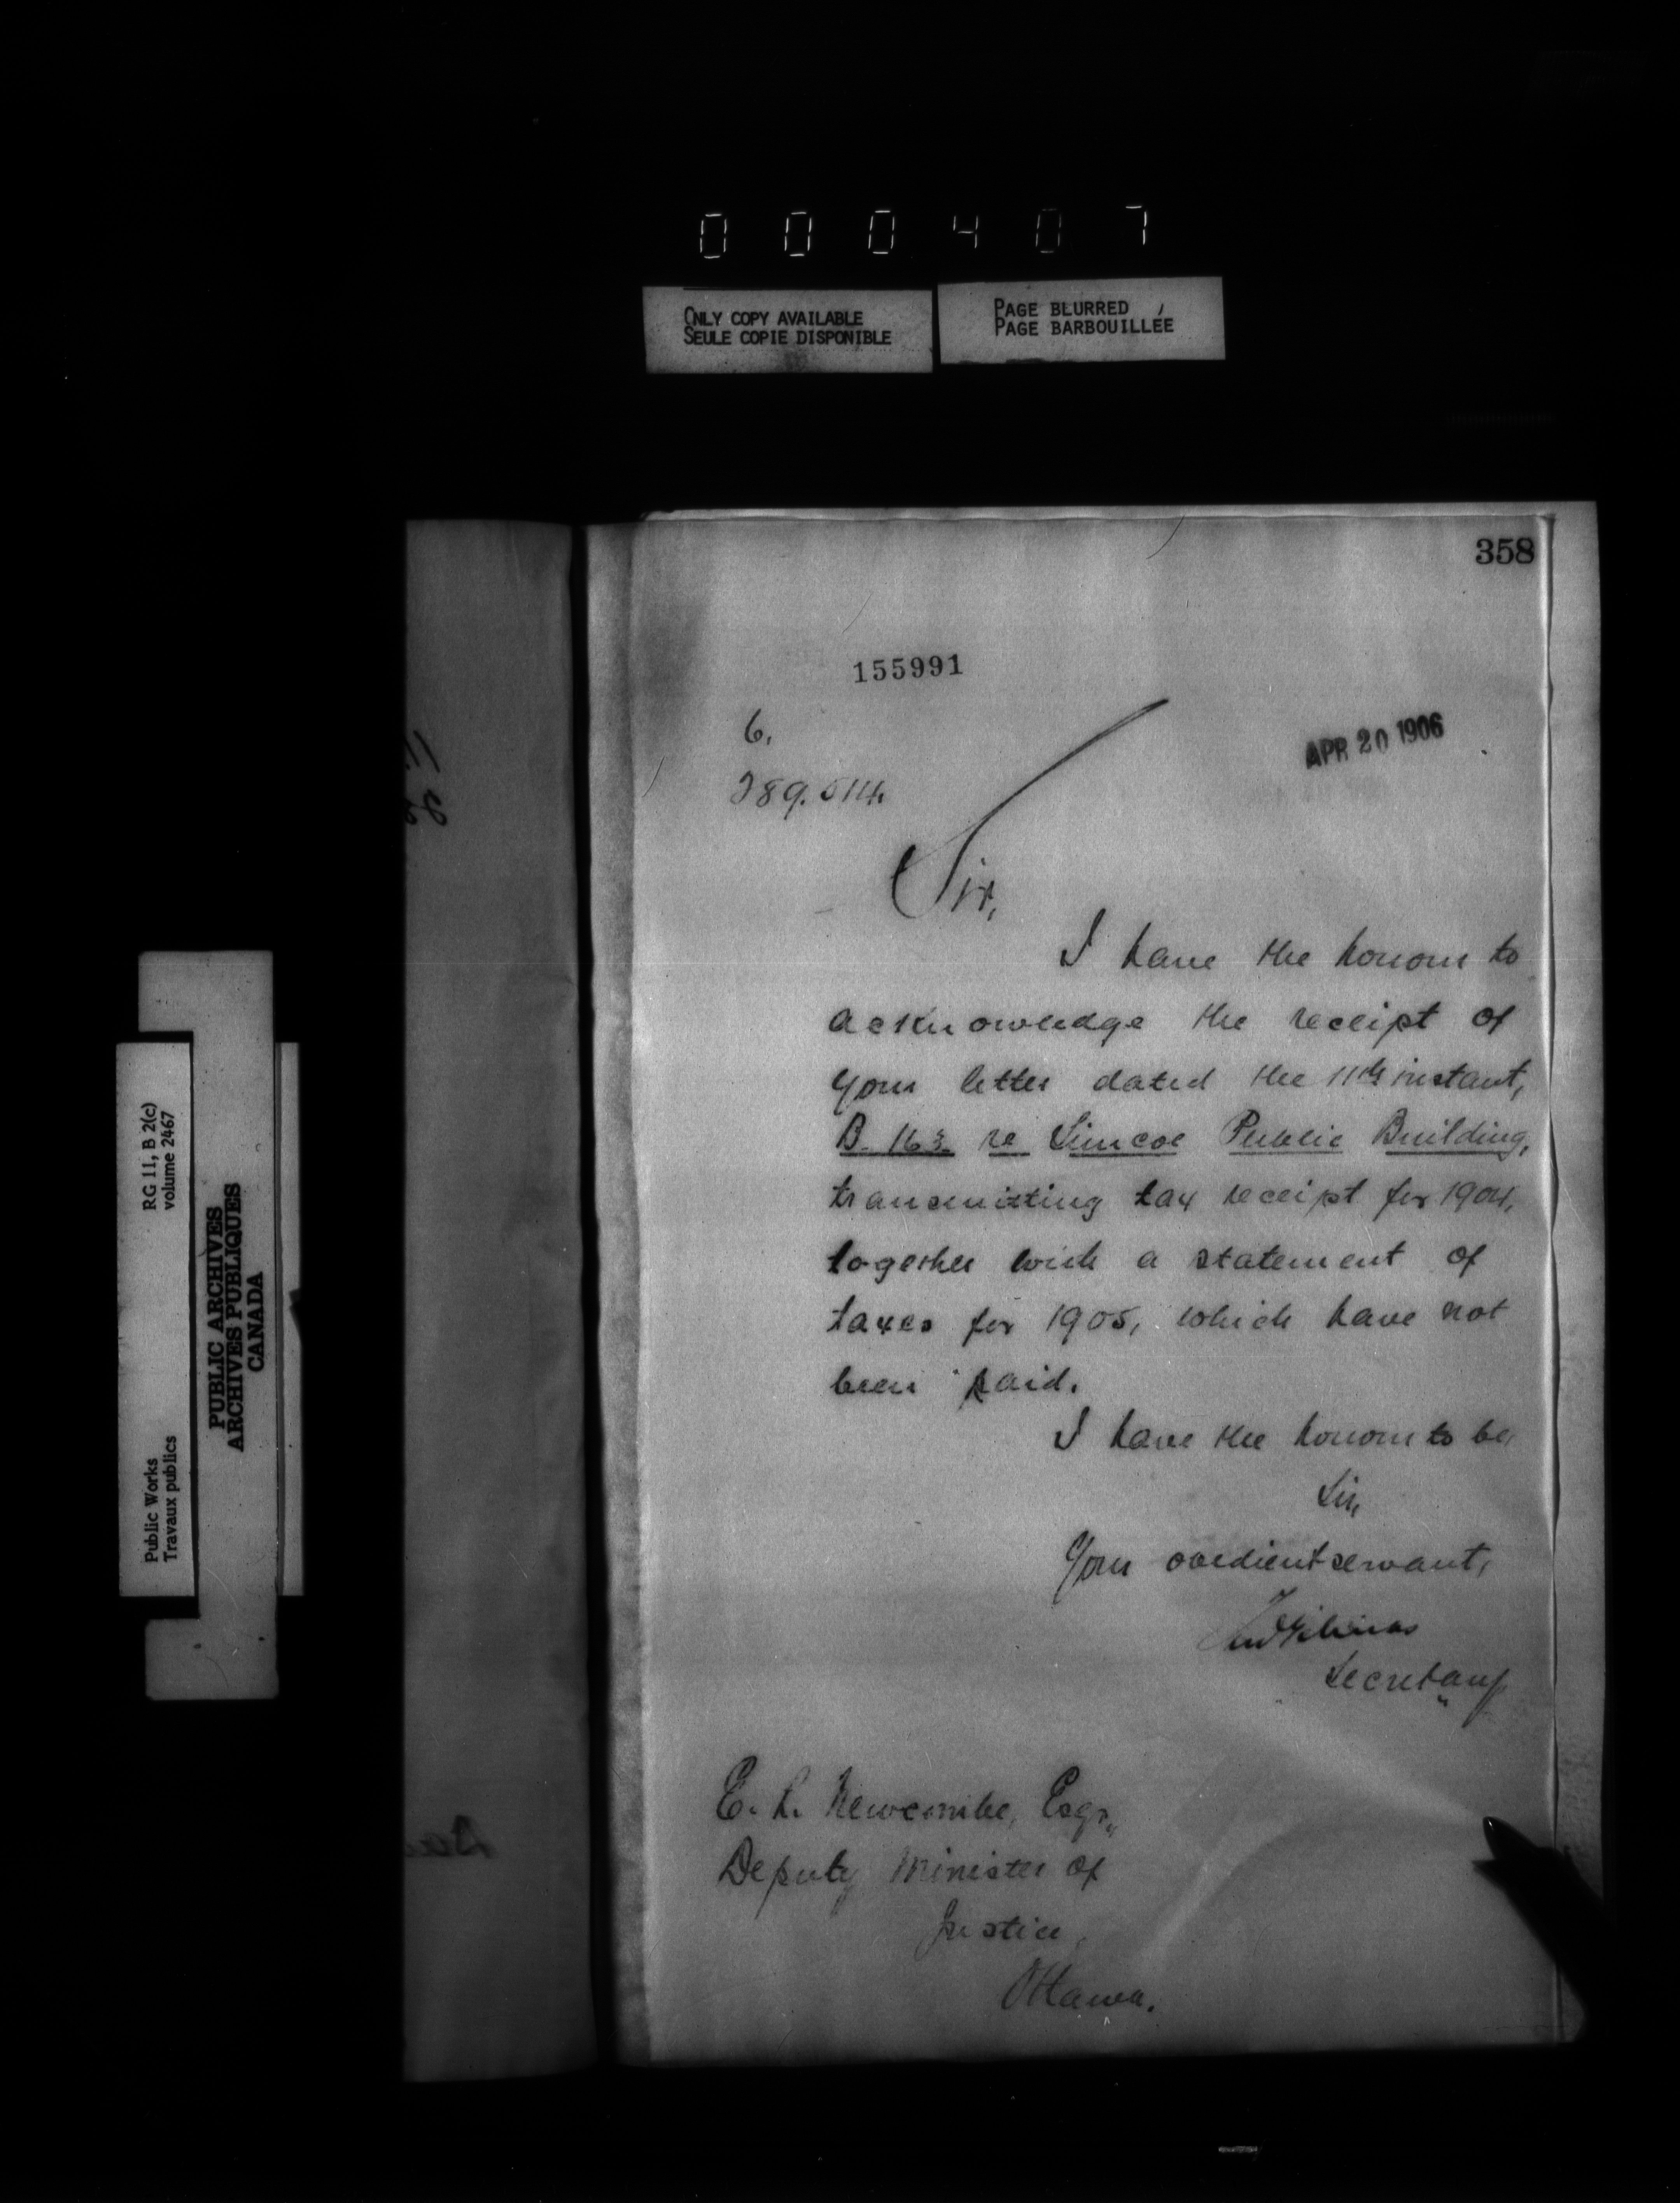 000407
ONLY COPY AVAILABLE
SEULE COPIE DISPONIBLE
PAGE BLURRED
PAGE BARBOUILLÉE
358
155991
6.
APR 20 1906
Sir,
I have the honour to
acknowledge the receipt of
your letter dated the 11th instant,
B. 163 re Simcoe Public Building,
transmitting tax receipt for 1904,
together with a statement of
taxes for 1905, which have not
been paid.
I have the honour to be,
Sir,
Your obedient servant,
Secretary
E. L. Newcombe, Esqr.,
Deputy Minister of
Justice,
Ottawa.
RG 11, B 2(c)
volume 2467
PUBLIC ARCHIVES
ARCHIVES PUBLIQUES
CANADA
Public Works
Travaux publics